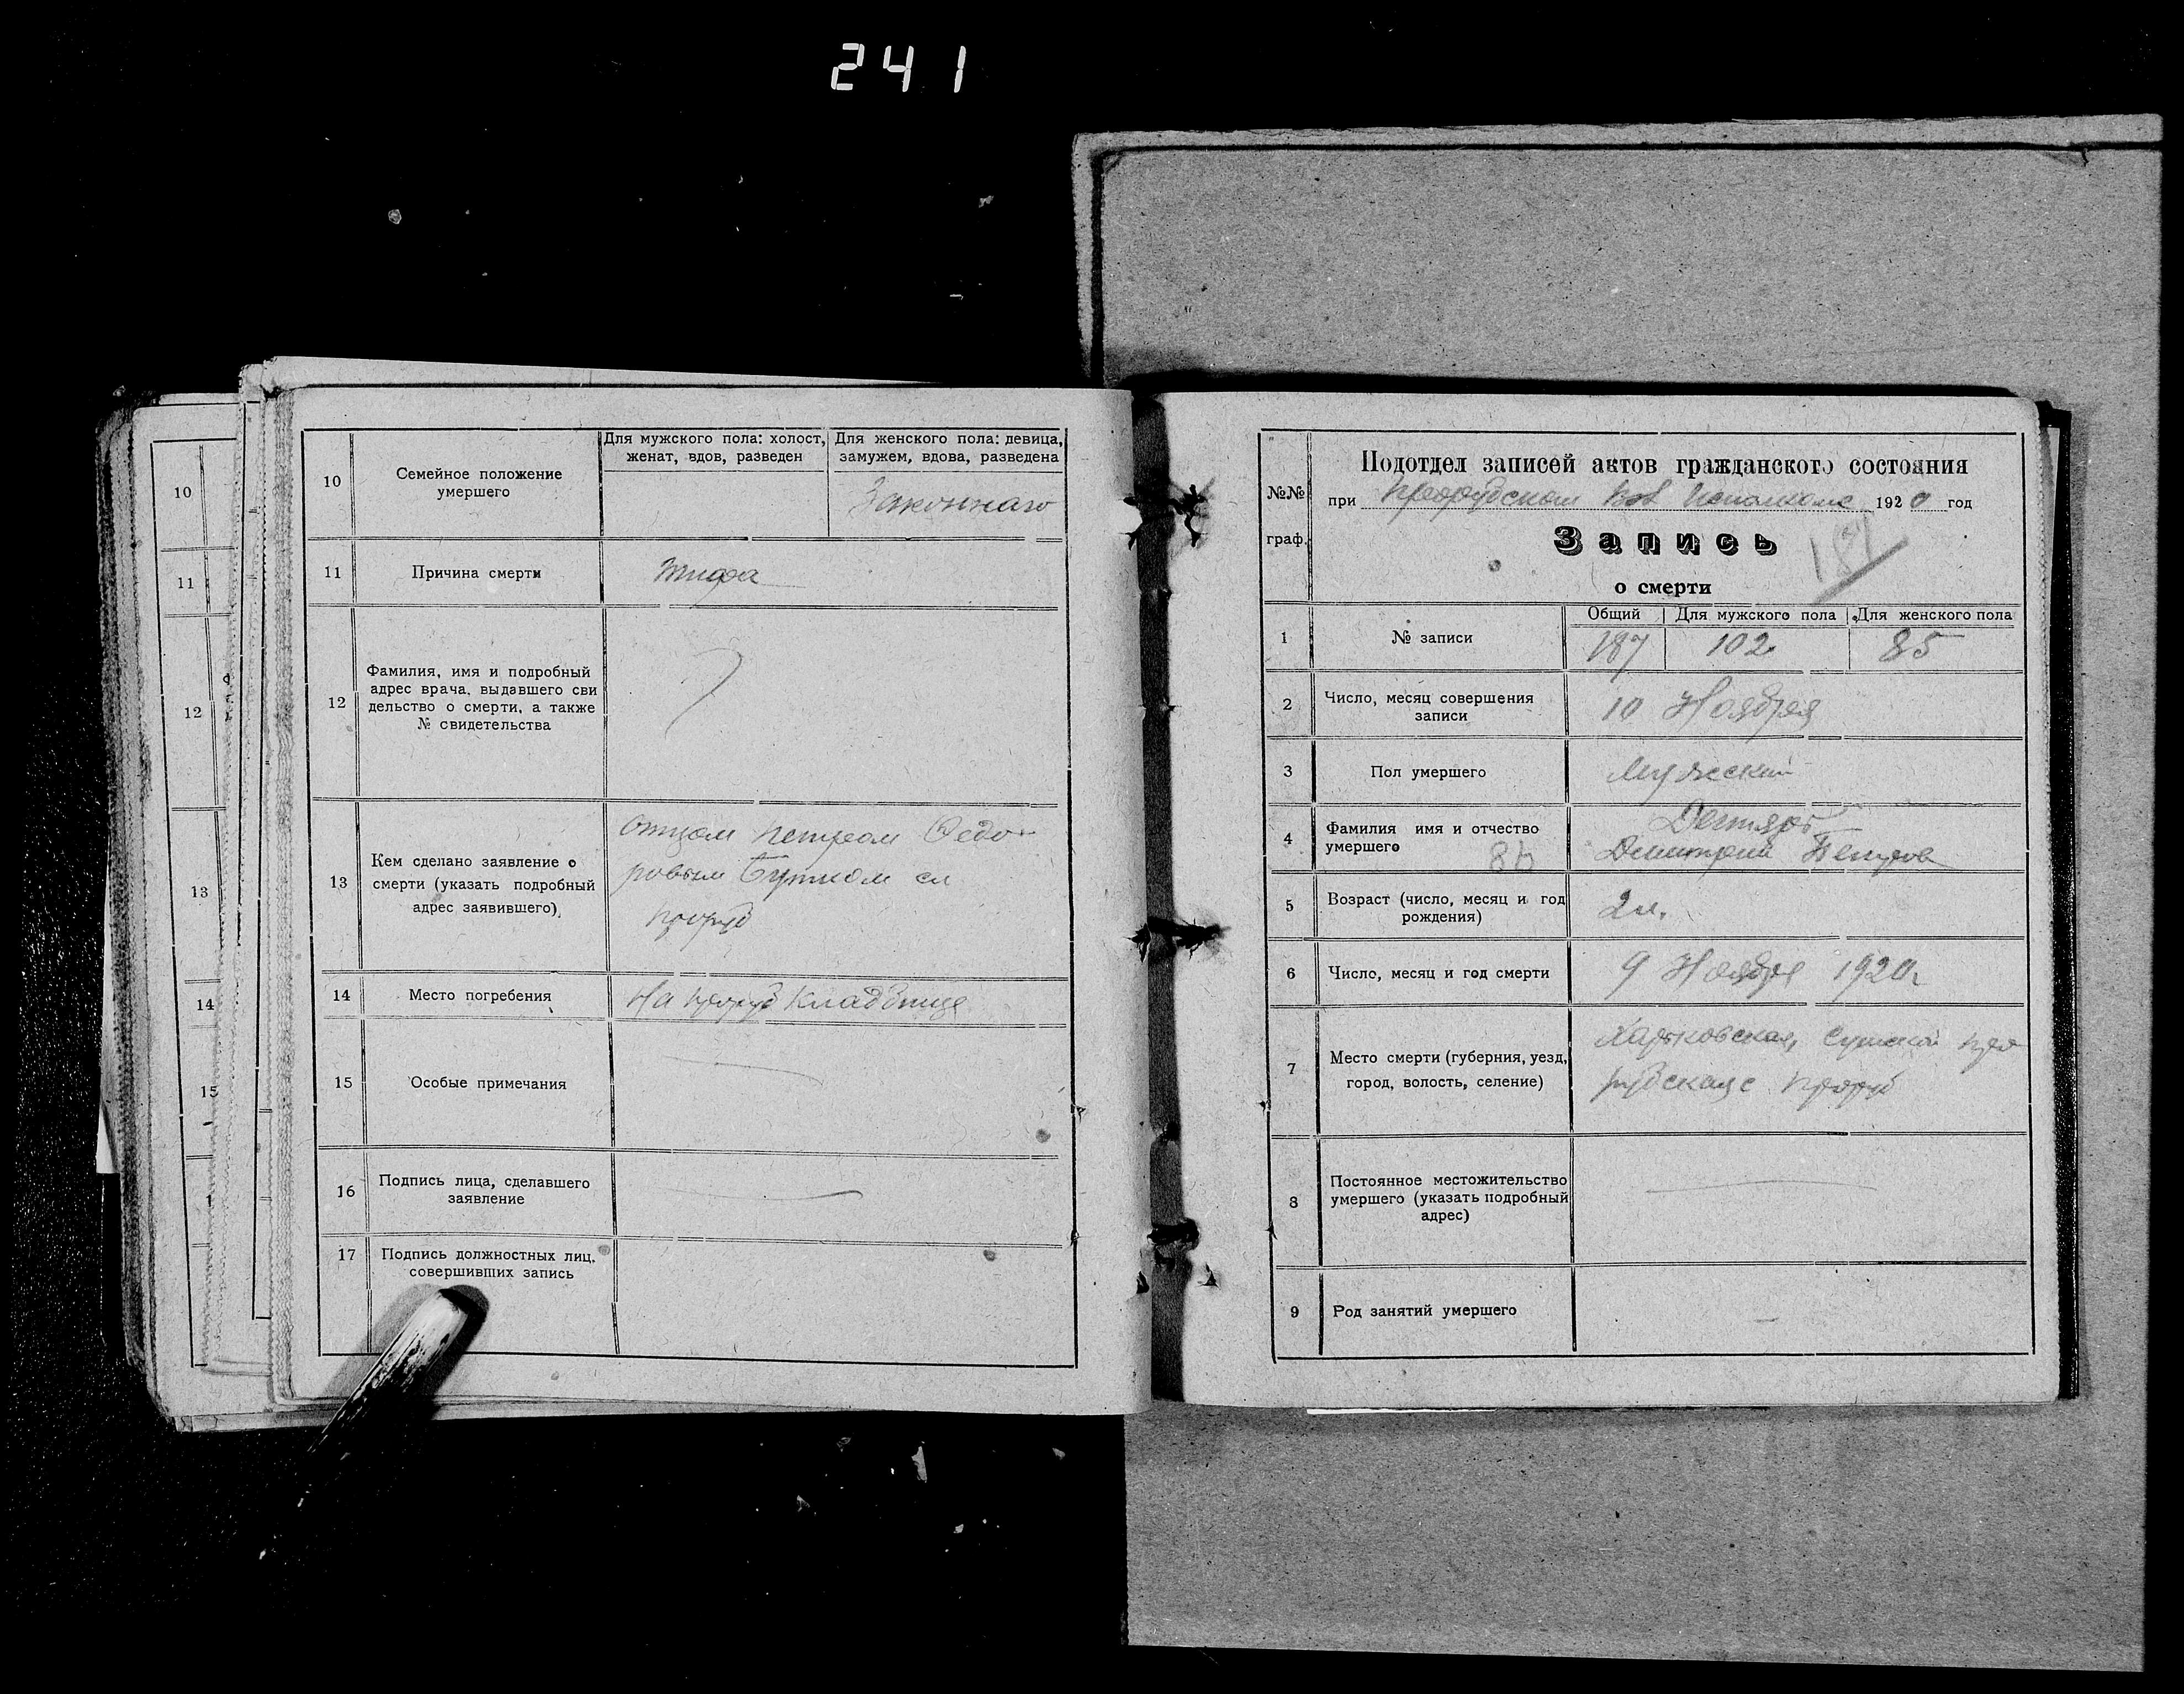 241
10
11
12
13
14
15
10
Семейное положение
умершего
Для мужского пола: холост,
женат, вдов, разведен
Для женского пола: девица,
замужем, вдова, разведена
Законнаго
11
Причина смерти
тифа
12
Фамилия, имя и подробный
адрес врача, выдавшего сви
дельство о смерти, а также
№ свидетельства
13
Кем сделано заявление о
смерти (указать подробный
адрес заявившего)
отцом Петром Федо-
ровым сл
14
Место погребения
На Кладбище
15
Особые примечания
16
Подпись лица, сделавшего
заявление
17
Подпись должностных лиц,
совершивших запись
№№
граф.
Подотдел записей актов гражданского состояния
при Вол Исполкоме 1920 год
Запись
187
о смерти
1
№ записи
Общий
Для мужского пола
Для женского пола
187
102
85
2
Число, месяц совершения
записи
10 Ноября
3
Пол умершего
Мужской
4
Фамилия имя и отчество
умершего
Дегтярь
Димитрий Петров
5
Возраст (число, месяц и год
рождения)
6
Число, месяц и год смерти
9 Ноября 1920г
7
Место смерти (губерния, уезд,
город, волость, селение)
Харьковская, Сумской
8
Постоянное местожительство
умершего (указать подробный
адрес)
9
Род занятий умершего